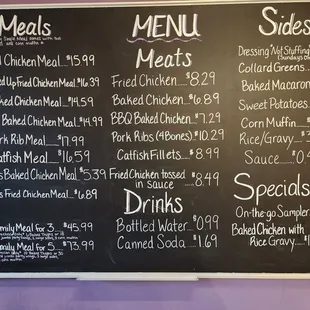 Meals
Chicken Meal...$15.99
Up Fried Chicken Meal...$16.39
Baked Chicken Meal...$14.59
Baked Chicken Meal $14.99
Rib Meal......$17.99
Meal....$16.59
Baked Chicken Meal...$5.39
Fried Chicken Meal...$6.89
Meal for 3...$45.99
Meal for 5...$73.99
MENU
Meats
Fried Chicken....$8.29
Baked Chicken...$6.89
BBQ Baked Chicken $7.29
Pork Ribs (4 Bones).$10.29
Catfish Fillets....$8.99
Fried Chicken tossed
in sauce ......$8.49
Drinks
Bottled Water...$0.99
Canned Soda.$1.69
Sides
Dressing "Not Stuffing"
Collard Greens..
Baked Macaroni
Sweet Potatoes.
Corn Muffin....$
Rice/Gravy....$3
Sauce.....$0.4
Specials
On-the-go Sampler
Baked Chicken with
Rice Gravy.....$1